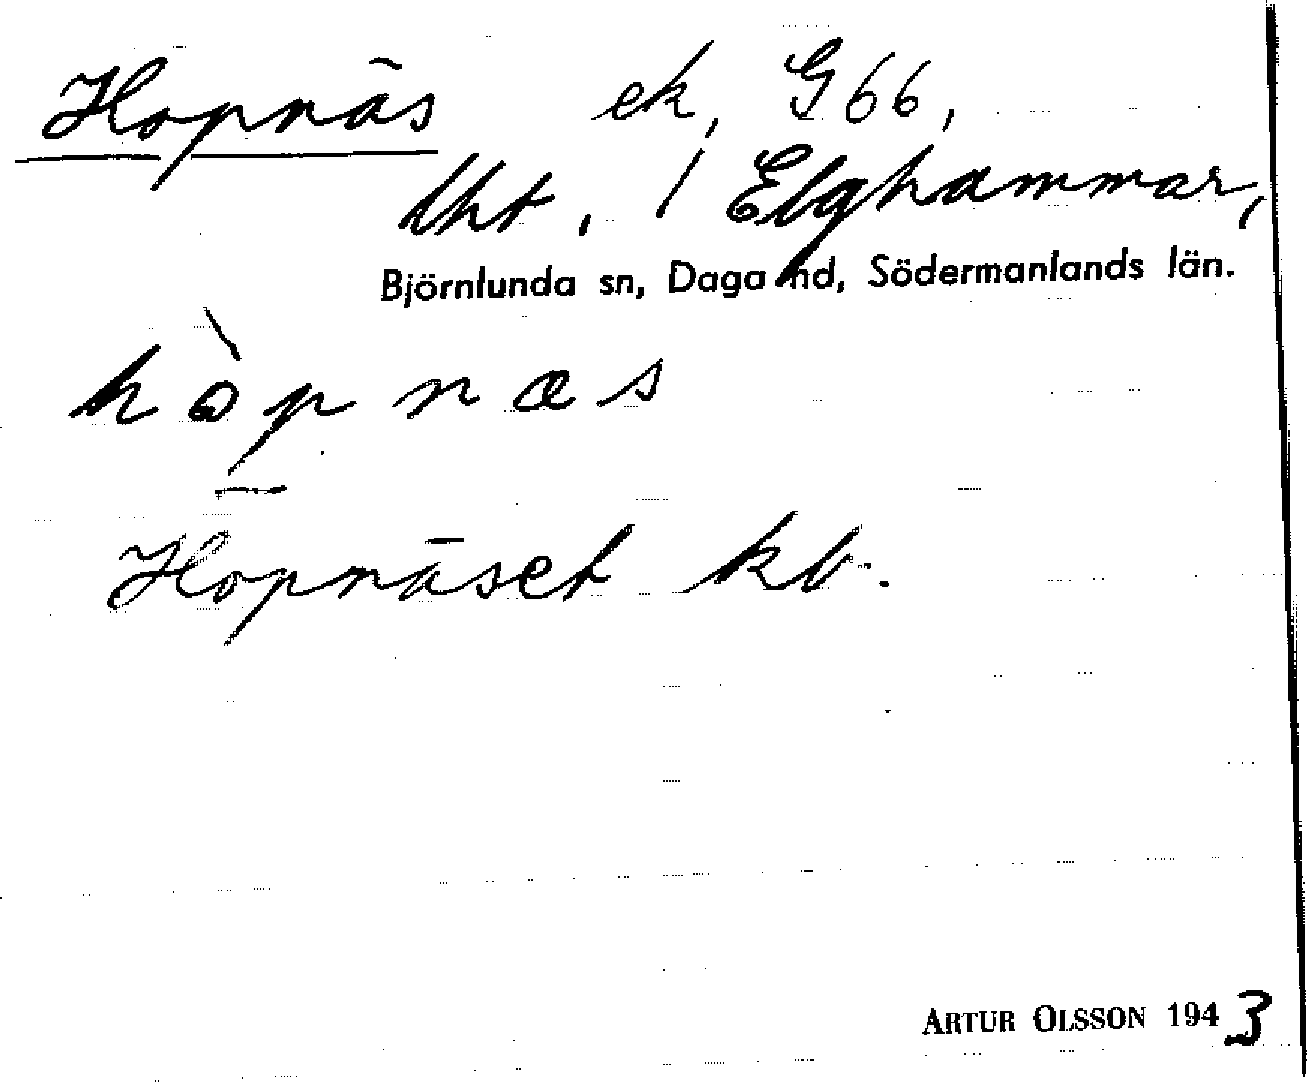 Hopnäs ek, G 66,
lht. / Elghammar,
Björnlunda sn, Daga hd, Södermanlands län.
hòpnæs
Hopnäset kb.
ARTUR OLSSON 1943